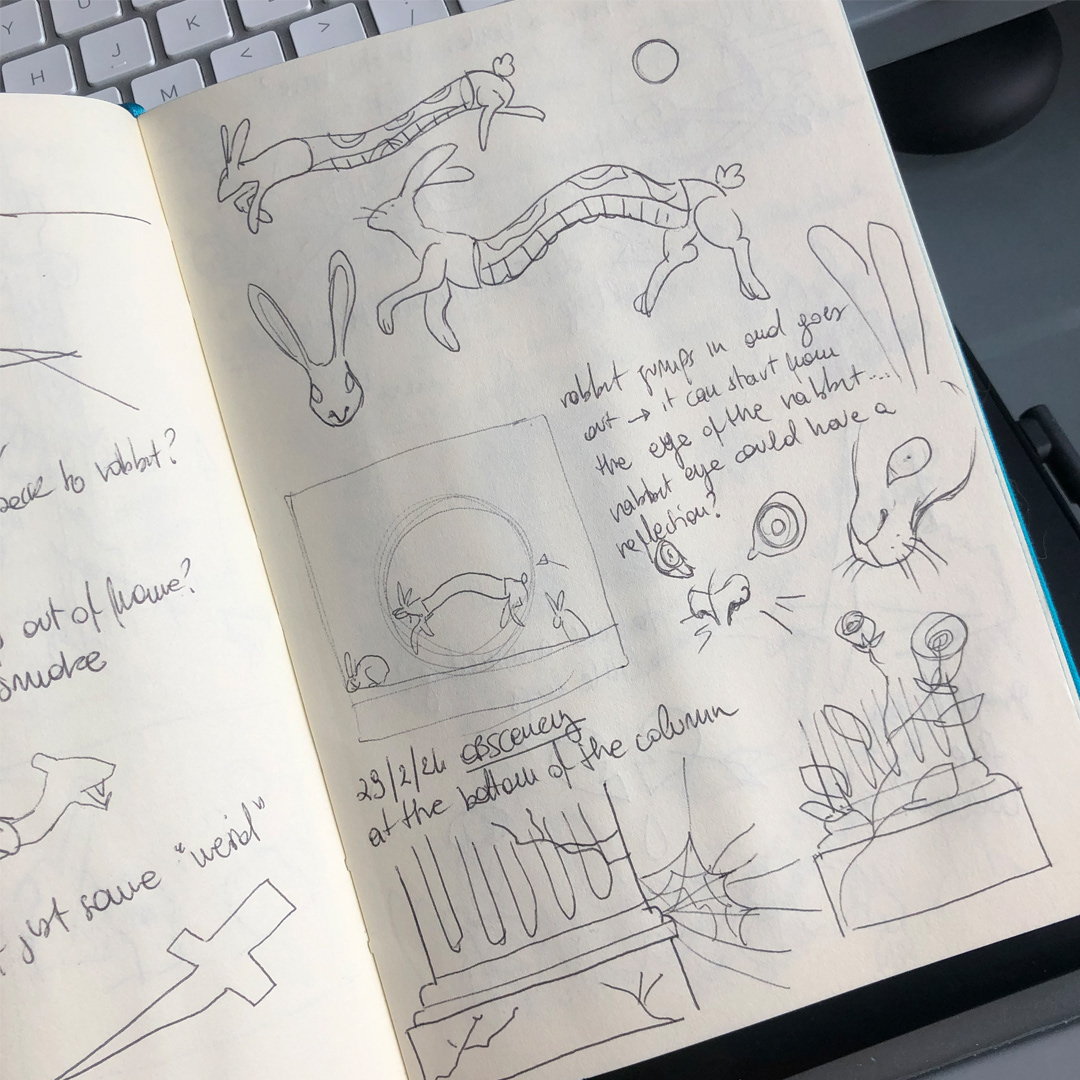 Y
U
I
H
J
K
M
<
>
/
to rabbit?
out of frame?
smoke
just some "weird"
rabbit jumps in and goes
out → it can start from
the eye of the rabbit...
rabbit eye could have a
reflection?
29/2/24 obscenery
at the bottom of the column